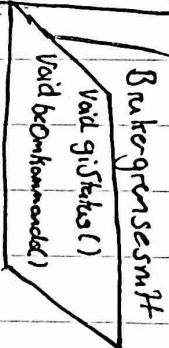 Brukergrensesnitt
Void giStatus()
Void beOmKommando()